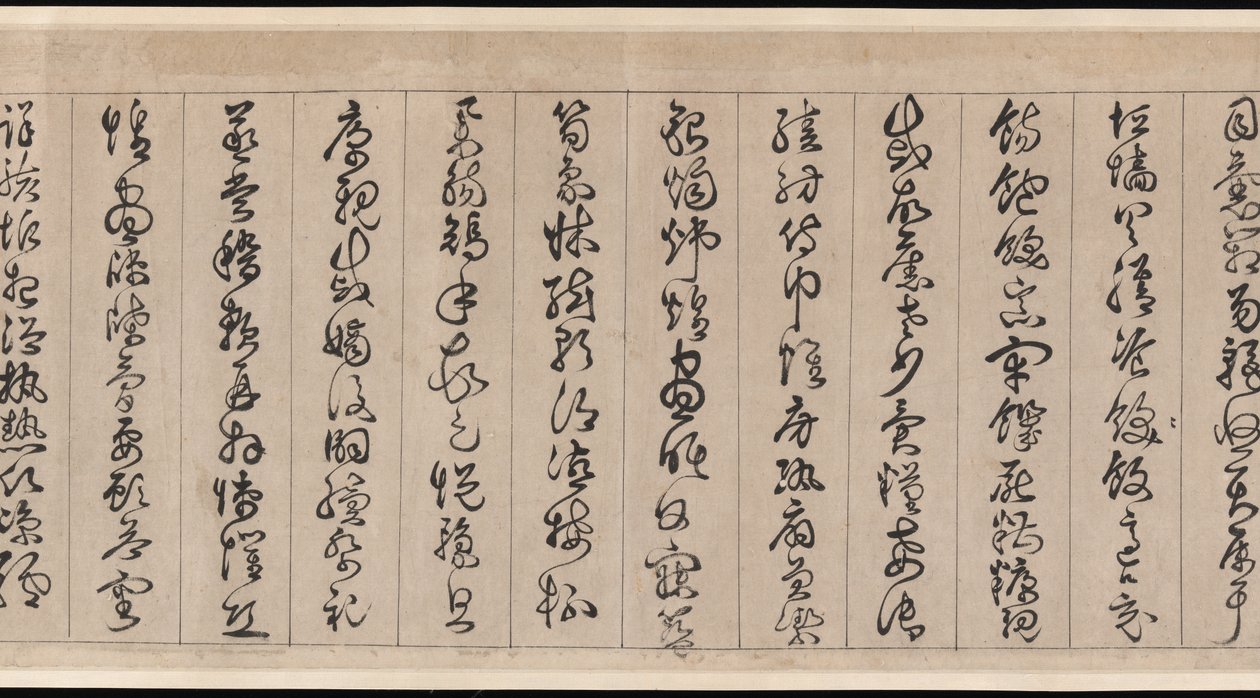 目囊箱易輶攸畏屬耳
垣墻具膳飡飯飯適口充
腸飽飫烹宰飢厭糟糠親
戚故舊老少異糧妾御
績紡侍巾帷房紈扇圓潔
銀燭煒煌晝眠夕寐籃
笋象床弦歌酒讌接杯
舉觴矯手頓足悅豫且
康親戚嫡後嗣續祭祀
蒸嘗稽顙再拜悚懼恐
惶牋牒簡要顧答審
詳骸垢想浴執熱願涼驢